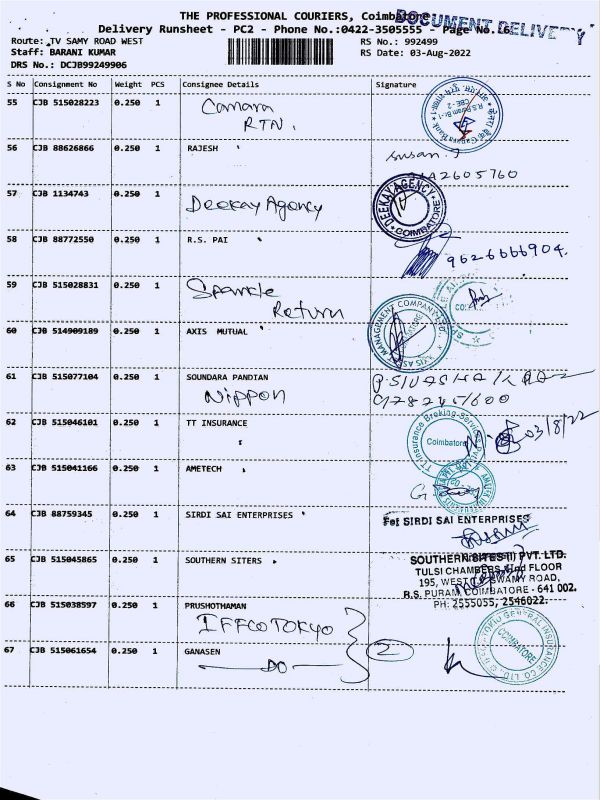 THE PROFESSIONAL COURIERS, Coimbatore
DOCUMENT DELIVERY
Delivery Runsheet - PC2 - Phone No.:0422-3505555 - Page No.:6
Route: TV SAMY ROAD WEST
RS No.: 992499
Staff: BARANI KUMAR
RS Date: 03-Aug-2022
DRS No.: DCJB99249906
S No Consignment No Weight PCS Consignee Details Signature
55 CJB 515028223 0.250 1 Canara
RTN.
56 CJB 88626866 0.250 1 RAJESH
susan.J
57 CJB 1134743 0.250 1 Deekay Agency
DEEKAY AGENCY
COIMBATORE
58 CJB 88772550 0.250 1 R.S. PAI
9626666904.
59 CJB 515028831 0.250 1 Sparkle
Return
60 CJB 514909189 0.250 1 AXIS MUTUAL
AXIS ASSET MANAGEMENT COMPANY
61 CJB 515077104 0.250 1 SOUNDARA PANDIAN
Nippon
62 CJB 515046101 0.250 1 TT INSURANCE
TT Insurance Broking Services
Coimbatore
03/8/22
63 CJB 515041166 0.250 1 AMETECH
64 CJB 88759345 0.250 1 SIRDI SAI ENTERPRISES
For SIRDI SAI ENTERPRISES
65 CJB 515045865 0.250 1 SOUTHERN SITERS
SOUTHERN SITES (I) PVT. LTD.
TULSI CHAMBERS, FLOOR
195, WEST SWAMY ROAD,
R.S. PURAM, COIMBATORE - 641 002.
PH: 2555055, 2546022.
66 CJB 515038597 0.250 1 PRUSHOTHAMAN
IFFCO TOKYO
67 CJB 515061654 0.250 1 GANASEN
DO
2
TOKIO GENERAL INSURANCE CO. LTD.
COIMBATORE